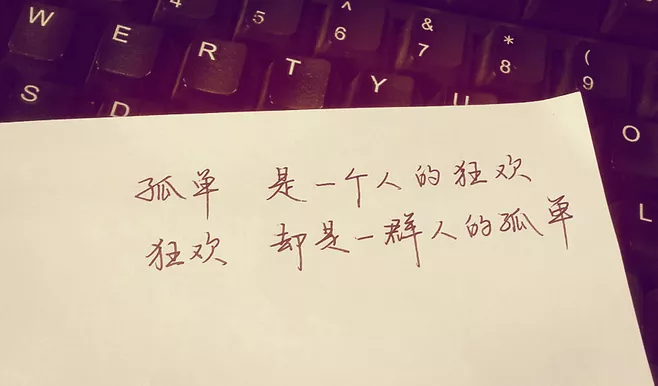 W E R T Y U
4 5 ^ 6 & 7 * 8 ( 9
S D O L
孤单 是一个人的狂欢
狂欢 却是一群人的孤单